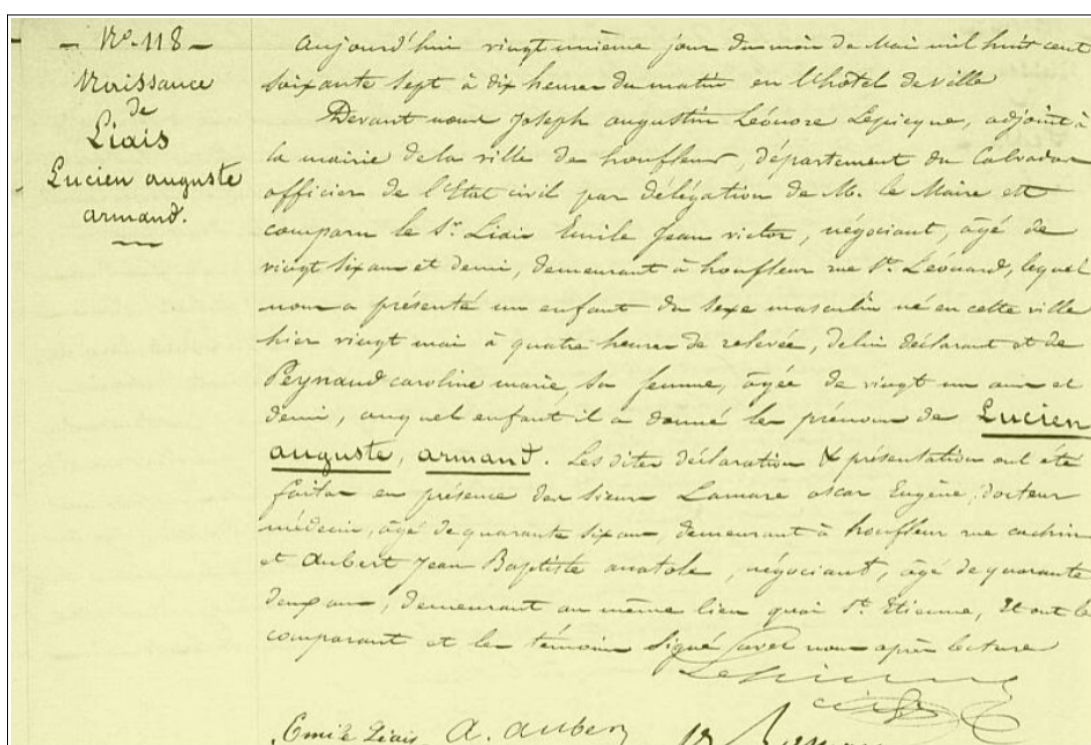 - No. 118 -
Naissance
de
Liais
Lucien auguste
armand.
aujourd'hui vingt unième jour du mois de Mai mil huit cent
soixante sept à dix heures du matin en l'hôtel de ville
Devant nous Joseph augustin Léonore Lepicque, adjoint à
la mairie de la ville de honfleur, département du Calvados
officier de l'Etat civil par délégation de M. le Maire est
comparu le Sr. Liais Emile Jean victor, négociant, âgé de
vingt six ans et demi, demeurant à honfleur rue St. Léonard, lequel
nous a présenté un enfant du sexe masculin né en cette ville
hier vingt mai à quatre heures de relevée, de lui déclarant et de
Peynaud caroline marie, sa femme, âgée de vingt un ans et
demi, auquel enfant il a donné les prénoms de Lucien
auguste, armand. Les dites déclaration & présentation ont été
faites en présence des sieurs Lamare oscar Eugène, docteur
médecin, âgé de quarante six ans, demeurant à honfleur rue cachin
et Aubert Jean Baptiste anatole, négociant, âgé de quarante
deux ans, demeurant au même lieu quai St. Etienne, Et ont le
comparant et les témoins signé avec nous après lecture
Emile Liais A. Aubert